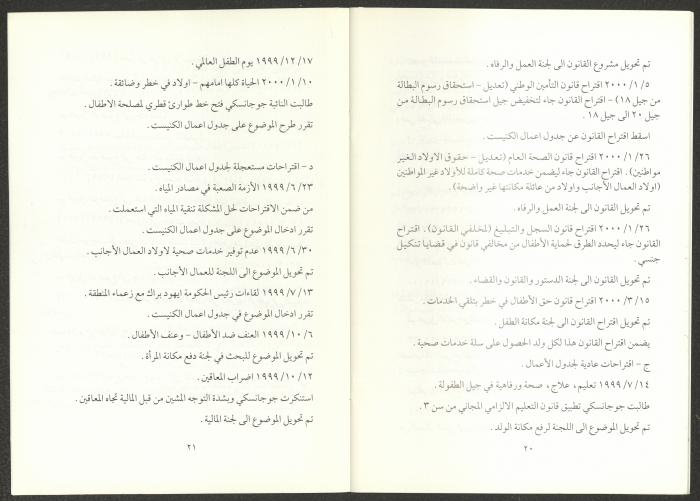 تم تحويل مشروع القانون الى لجنة العمل والرفاه .
٢٠٠٠/١/٥ اقتراح قانون التأمين الوطني (تعديل - استحقاق رسوم البطالة
من جيل ١٨) - اقتراح القانون جاء لتخفيض جيل استحقاق رسوم البطالة من
جيل ٢٠ الى جيل ١٨ .
اسقط اقتراح القانون عن جدول اعمال الكنيست .
٢٠٠٠/١/٢٦ اقتراح قانون الصحة العام (تعديل - حقوق الاولاد الغير
مواطنين) . اقتراح القانون جاء ليضمن خدمات صحة كاملة للأولاد غير المواطنين
(اولاد العمال الأجانب واولاد من عائلة مكانتها غير واضحة) .
تم تحويل القانون الى لجنة العمل والرفاه .
٢٠٠٠/١/٢٦ اقتراح قانون السجل والتبليغ (لمخلفي القانون) . اقتراح
القانون جاء ليحدد الطرق لحماية الأطفال من مخالفي قانون في قضايا تنكيل
جنسي .
تم تحويل القانون الى لجنة الدستور والقانون والقضاء .
٢٠٠٠/٣/١٥ اقتراح قانون حق الأطفال في خطر بتلقي الخدمات .
تم تحويل اقتراح القانون الى لجنة مكانة الطفل .
يضمن اقتراح القانون هذا لكل ولد الحصول على سلة خدمات صحية .
ج - اقتراحات عادية لجدول الأعمال .
١٩٩٩/٧/١٤ تعليم ، علاج ، صحة ورفاهية في جيل الطفولة .
طالبت جوجانسكي تطبيق قانون التعليم الالزامي المجاني من سن ٣ .
تم تحويل الموضوع الى اللجنة لرفع مكانة الولد .
٢٠
١٩٩٩/١٢/١٧ يوم الطفل العالمي .
٢٠٠٠/١/١٠ الحياة كلها امامهم - اولاد في خطر وضائقة .
طالبت النائبة جوجانسكي فتح خط طوارئ قطري لمصلحة الاطفال .
تقرر طرح الموضوع على جدول اعمال الكنيست .
د - اقتراحات مستعجلة لجدول اعمال الكنيست .
١٩٩٩/٦/٢٣ الأزمة الصعبة في مصادر المياه .
من ضمن الاقتراحات لحل المشكلة تنقية المياه التي استعملت .
تقرر ادخال الموضوع على جدول اعمال الكنيست .
١٩٩٩/٦/٣٠ عدم توفير خدمات صحية لاولاد العمال الأجانب .
تم تحويل الموضوع الى اللجنة للعمال الأجانب .
١٩٩٩/٧/١٣ لقاءات رئيس الحكومة ايهود براك مع زعماء المنطقة .
تقرر ادخال الموضوع في جدول اعمال الكنيست .
١٩٩٩/١٠/٦ العنف ضد الأطفال - وعنف الأطفال .
تم تحويل الموضوع للبحث في لجنة دفع مكانة المرأة .
١٩٩٩/١٠/١٢ اضراب المعاقين .
استنكرت جوجانسكي وبشدة التوجه المشين من قبل المالية تجاه المعاقين .
تم تحويل الموضوع الى لجنة المالية .
٢١